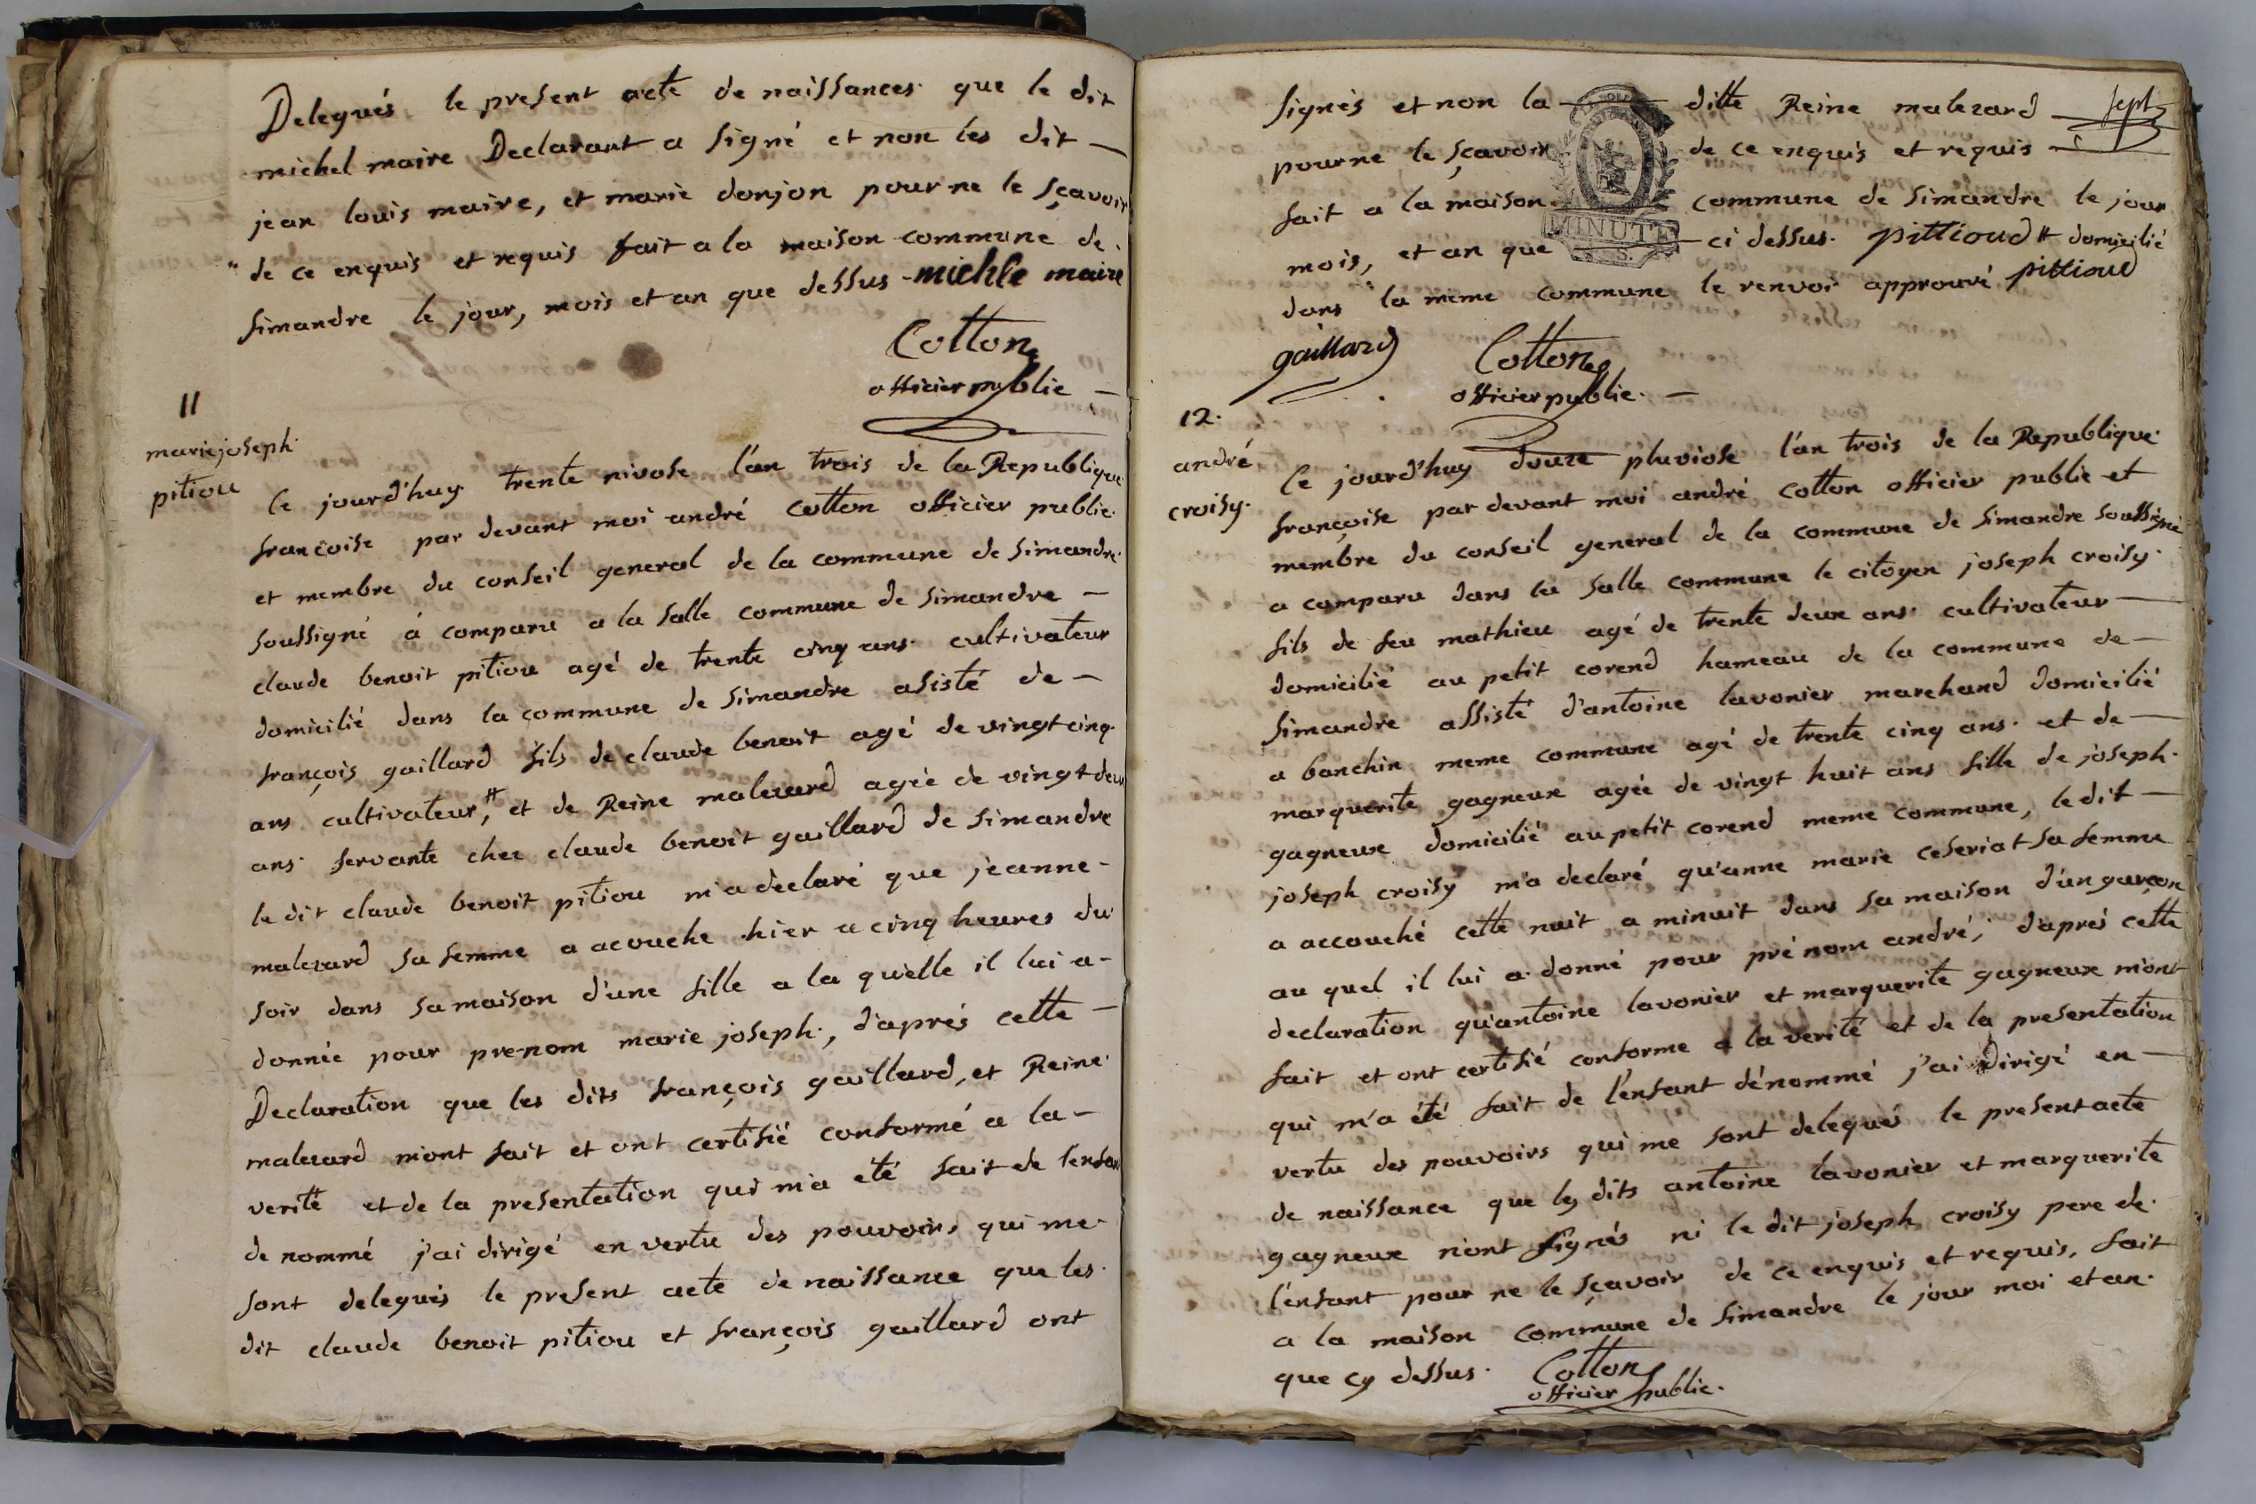 Delegués le present acte de naissances que le dit
michel maire Declarant a signé et non les dit —
jean louis maire, et marie donjon pour ne le sçavoir
de ce enquis et requis fait a la maison commune de
simandre le jour, mois et an que dessus michle maire
Cotton
officier public —
11
marie joseph
pitiou
le jourd'huy trente nivose l'an trois de la Republique
francoise par devant moi andré cotton officier public
et membre du conseil general de la commune de simandre
soussigné á comparu a la salle commune de simandre —
claude benoit pitiou agé de trente cinq ans cultivateur
domicilié dans la commune de simandre asisté de —
françois gaillard fils de claude benoit agé de vingt cinq
ans cultivateur, # et de Reine malezard agée de vingt deux
ans servante chez claude benoit gaillard de simandre
le dit claude benoit pitiou m'a declaré que jeanne
malezard sa femme a acouche hier a cinq heures du
soir dans sa maison d'une fille a la quelle il lui a
donnée pour pre-nom marie joseph, d'aprés cette —
Declaration que les dits françois gaillard, et Reine
malezard m'ont fait et ont certifié conformé a la —
verité et de la presentation qui m'a eté fait de l'enfan
de nommé j'ai dirigé en vertu des pouvoirs qui me
sont delegués le present acte de naissance que les
dit claude benoit pitiou et françois gaillard ont
sept
signés et non la ditte Reine malezard
pour ne le sçavoir de ce enquis et requis —
fait a la maison commune de simandre le jour
MINUTE
mois, et an que ci dessus. pittioud # domicilié
dans la meme commune le renvoi approuvé pittioud
gaillard Cotton
officier public. —
12.
andré
croisy.
le jourd'huy douze pluviose l'an trois de la Republique
françoise par devant moi andré cotton officier public et
membre du conseil general de la commune de simandre soussigné
a comparu dans la salle commune le citoyen joseph croisy
fils de feu mathieu agé de trente deux ans cultivateur —
domicilié au petit corend hameau de la commune de —
simandre assisté d'antoine lavonier marchand domicilié
a banchin meme commune agé de trente cinq ans et de —
marguerite gagneux agée de vingt huit ans fille de joseph
gagneux domicilié au petit corend meme commune, le dit —
joseph croisy m'a declaré qu'anne marie ceseriat sa femme
a accouché cette nuit a minuit dans sa maison d'un garçon
au quel il lui a donné pour pré nom andré, d'aprés cette
declaration qu'antoine lavonier et marguerite gagneux m'ont
fait et ont certifié conforme a la verité et de la presentation
qui m'a été fait de l'enfant dénommé j'ai dirigé en —
vertu des pouvoirs qui me sont delegués le present acte
de naissance que les dits antoine lavonier et marguerite
gagneux n'ont signés ni le dit joseph croisy pere de
l'enfant pour ne le sçavoir de ce enquis et requis, fait
a la maison commune de simandre le jour moi et an
que cy dessus. Cotton
officier public.